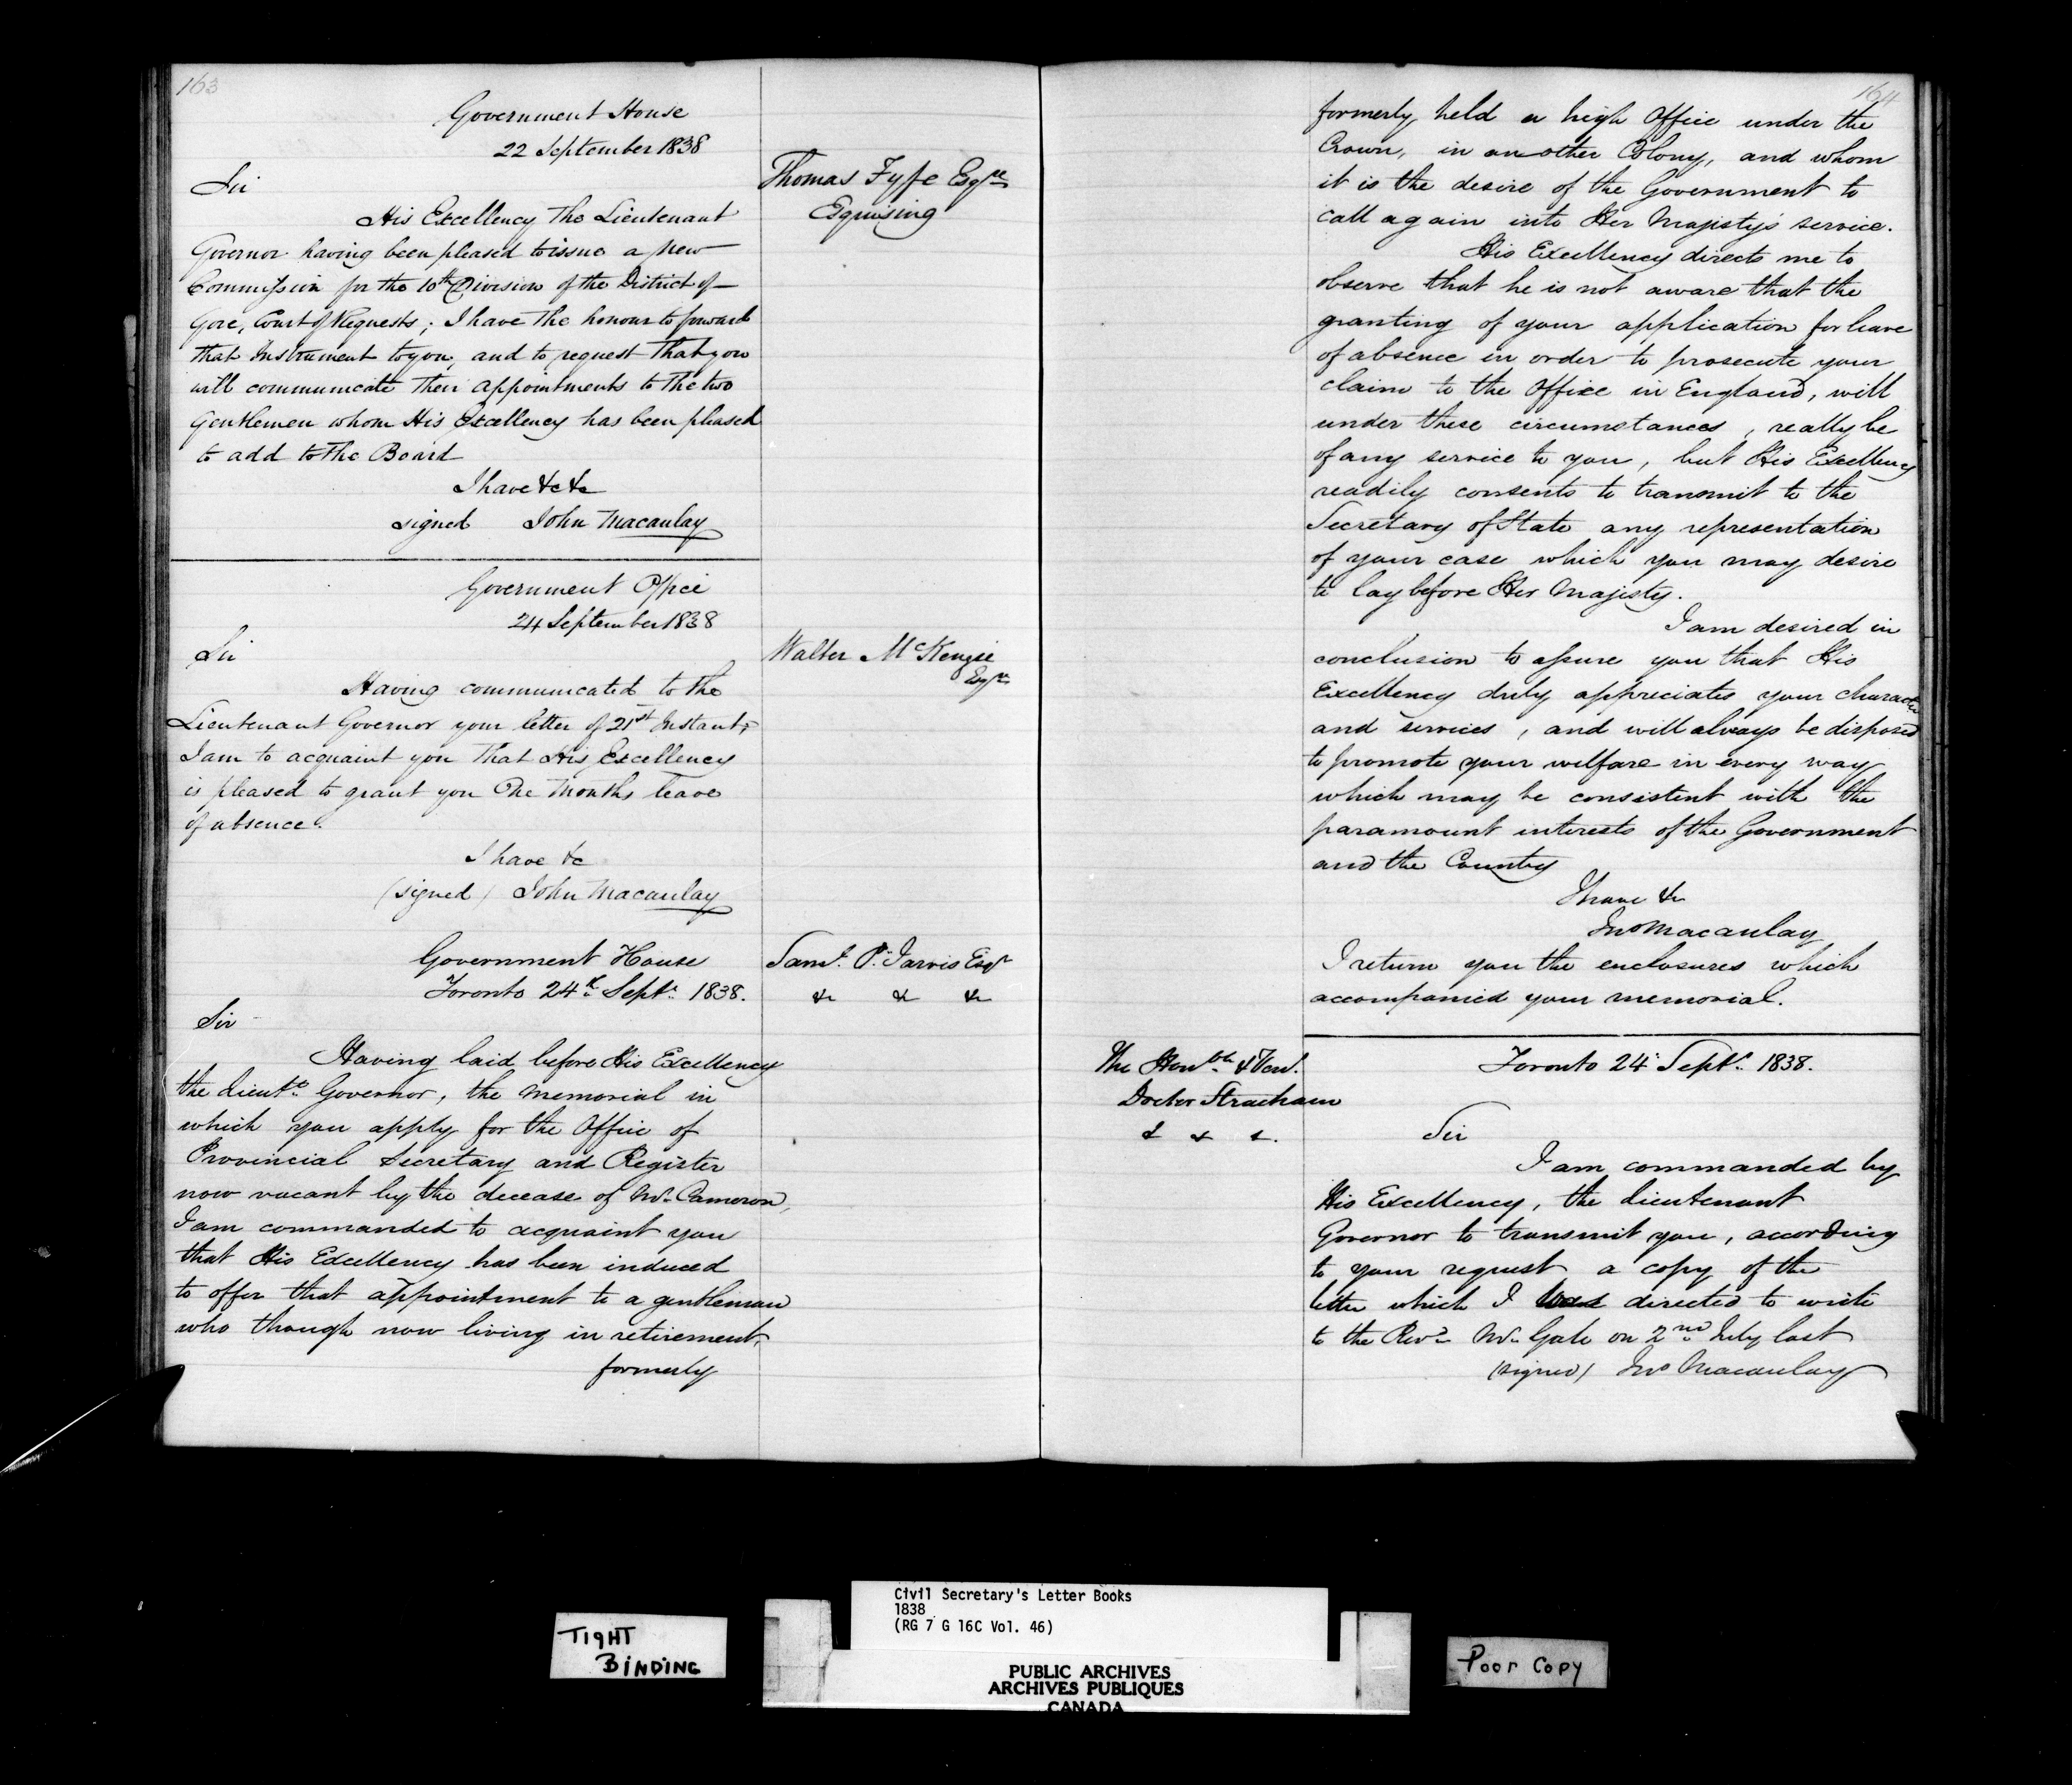 163
Government House
22 September 1838
Thomas Fyfe Esqre
Esquising
Sir
His Excellency The Lieutenant
Governor having been pleased to issue a new
Commission for the 10th Division of the District of
Gore, Court of Requests; I have the honour to forward
that Instrument to you, and to request that you
will communicate their appointments to the two
Gentlemen whom His Excellency has been pleased
to add to the Board
I have &c &c
signed John Macaulay
Government Office
24 September 1838
Walter McKenzie
Esqre
Sir
Having communicated to the
Lieutenant Governor your letter of 21st Instant,
I am to acquaint you that His Excellency
is pleased to grant you One Months leave
of absence.
I have &c
(signed) John Macaulay
Government House
Toronto 24th Septr 1838.
Saml. P. Jarvis Esqr
&c &c &c
Sir
Having laid before His Excellency
the Lieutt Governor, the memorial in
which you apply for the Office of
Provincial Secretary and Register
now vacant by the decease of Mr. Cameron,
I am commanded to acquaint you
that His Excellency has been induced
to offer that appointment to a gentleman
who though now living in retirement,
formerly
164
formerly held a high Office under the
Crown, in another Colony, and whom
it is the desire of the Government to
call again into Her Majesty's service.
His Excellency directs me to
observe that he is not aware that the
granting of your application for leave
of absence in order to prosecute your
claim to the Office in England, will
under these circumstances, really be
of any service to you, but His Excellency
readily consents to transmit to the
Secretary of State any representation
of your case which you may desire
to lay before Her Majesty.
I am desired in
conclusion to assure you that His
Excellency duly appreciates your character
and services, and will always be disposed
to promote your welfare in every way
which may be consistent with the
paramount interests of the Government
and the Country
I have &c
Jno Macaulay
I return you the enclosures which
accompanied your memorial.
The Honble & Ven.
Doctor Strachan
& & &.
Toronto 24 Septr 1838.
Sir
I am commanded by
His Excellency, the Lieutenant
Governor to transmit you, according
to your request a copy of the
letter which I was directed to write
to the Revd Mr. Gale on 2nd July last
(signed) Jno Macaulay
TIGHT
BINDING
Civil Secretary's Letter Books
1838
(RG 7 G 16C Vol. 46)
PUBLIC ARCHIVES
ARCHIVES PUBLIQUES
CANADA
Poor Copy